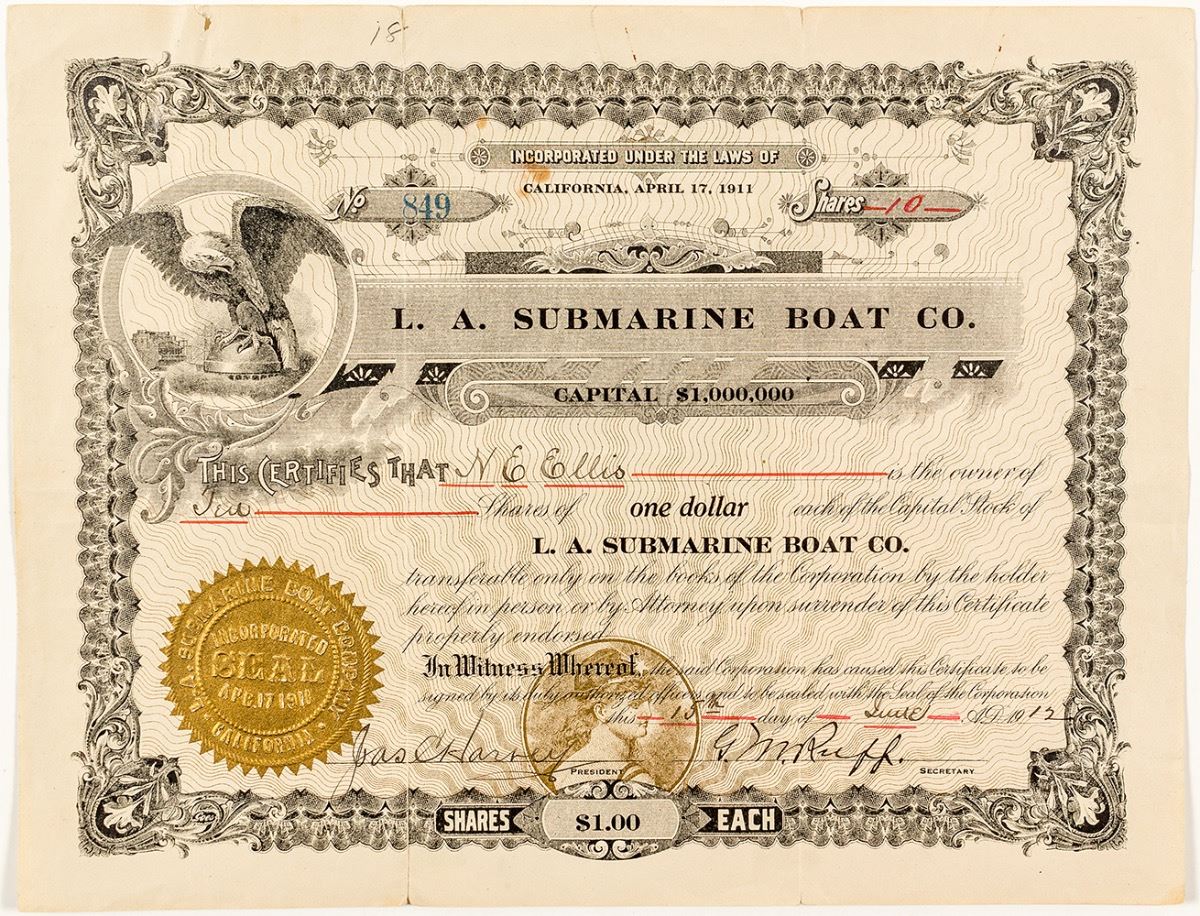 18
INCORPORATED UNDER THE LAWS OF
CALIFORNIA, APRIL 17, 1911
No. 849
Shares 10
L. A. SUBMARINE BOAT CO.
CAPITAL $1,000,000
THIS CERTIFIES THAT N E Ellis is the owner of
Ten Shares of one dollar each of the Capital Stock of
L. A. SUBMARINE BOAT CO.
transferable only on the books of the Corporation by the holder
hereof in person or by Attorney upon surrender of this Certificate
properly endorsed.
In Witness Whereof, the said Corporation has caused this Certificate to be
signed by its duly authorized officers and to be sealed with the Seal of the Corporation
this 15th day of June A.D. 1912
L. A. SUBMARINE BOAT COMPANY
INCORPORATED
SEAL
APR. 17 1911
CALIFORNIA
Jas C Harvey G. M. Ruff.
PRESIDENT SECRETARY
SHARES $1.00 EACH